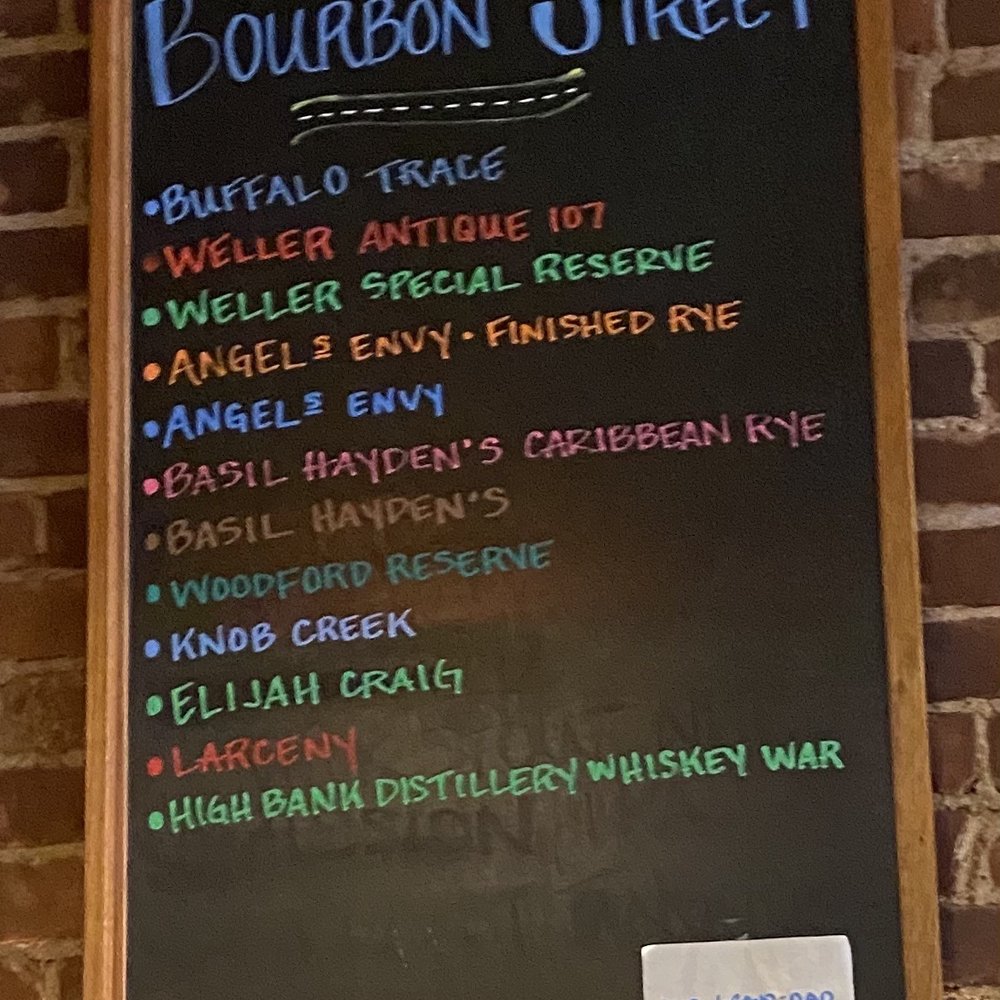 BOURBON STREET
•BUFFALO TRACE
•WELLER ANTIQUE 107
•WELLER SPECIAL RESERVE
•ANGELS ENVY•FINISHED RYE
•ANGELS ENVY
•BASIL HAYDEN'S CARIBBEAN RYE
•BASIL HAYDEN'S
•WOODFORD RESERVE
•KNOB CREEK
•ELIJAH CRAIG
•LARCENY
•HIGH BANK DISTILLERY WHISKEY WAR